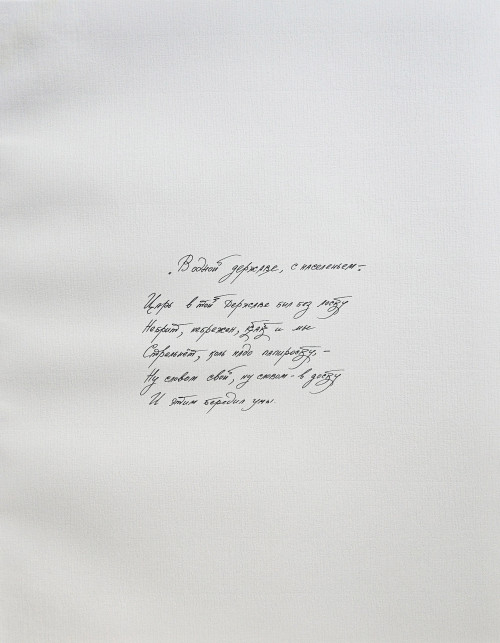 „В одной державе, с населеньем..."
Царь в той державе был без лоску
Небрит, небрежен, как и мы
Стрельнет, коль надо папироску, —
Ну словом свой, ну словом — в доску
И этим бередил умы.